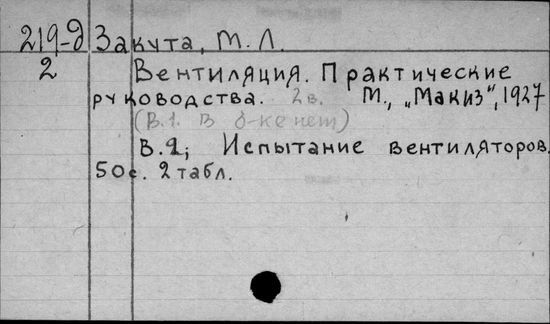 219-д Закута, М. Л.
2 Вентиляция. Практические
руководства. 2в. М., „Макиз", 1927
(В.1. В б-ке нет)
В.2; Испытание вентиляторов.
50с. 2 табл.